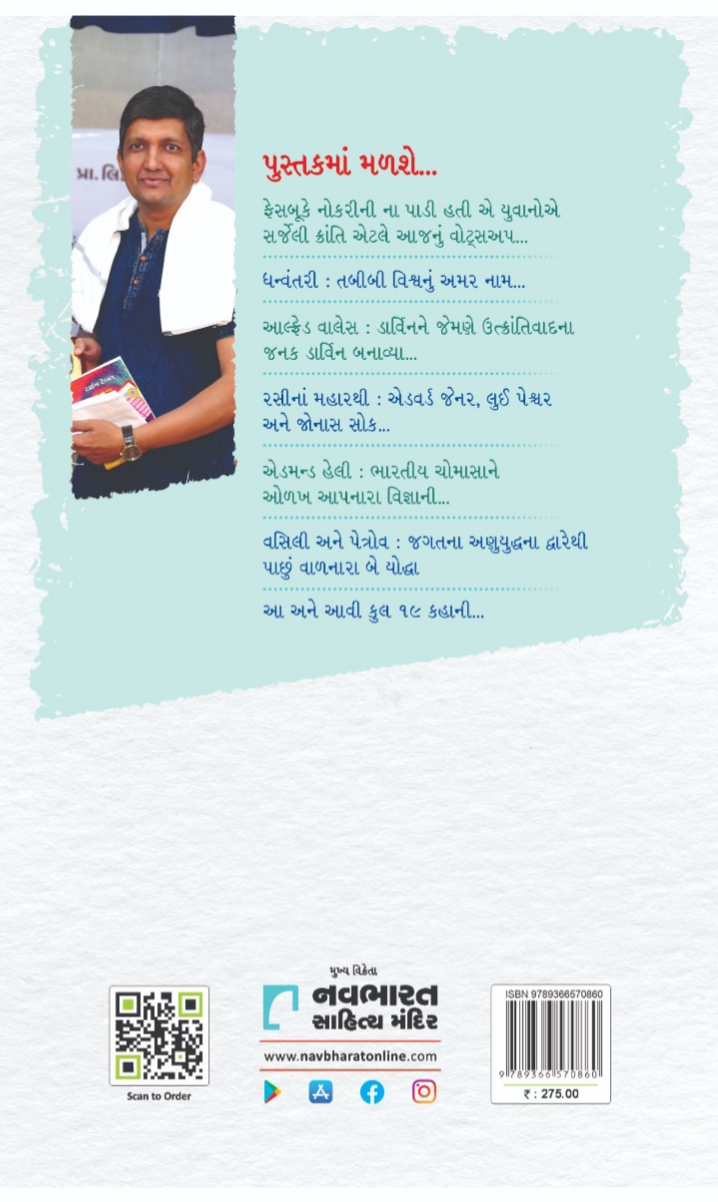 પ્રા. લિ.
પુસ્તકમાં મળશે...
ફેસબૂકે નોકરીની ના પાડી હતી એ યુવાનોએ
સર્જેલી ક્રાંતિ એટલે આજનું વોટ્સઅપ...
ધન્વંતરી : તબીબી વિશ્વનું અમર નામ...
આલ્ફ્રેડ વાલેસ : ડાર્વિનને જેમણે ઉત્ક્રાંતિવાદના
જનક ડાર્વિન બનાવ્યા...
રસીનાં મહારથી : એડવર્ડ જેનર, લુઈ પેશ્ચર
અને જોનાસ સોક...
એડમન્ડ હેલી : ભારતીય ચોમાસાને
ઓળખ આપનારા વિજ્ઞાની...
વસિલી અને પેત્રોવ : જગતના અણુયુદ્ધના દ્વારેથી
પાછું વાળનારા બે યોદ્ધા
આ અને આવી કુલ ૧૯ કહાની...
મુખ્ય વિક્રેતા
નવભારત
સાહિત્ય મંદિર
www.navbharatonline.com
Scan to Order
ISBN 9789366570860
9 789366 570860
₹ : 275.00